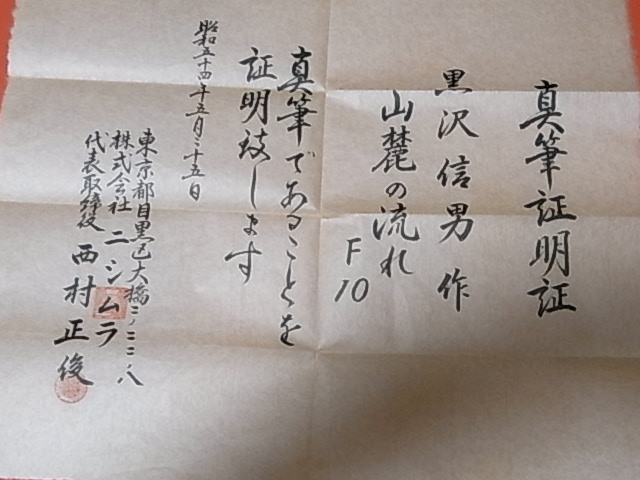 真筆証明証
黒沢信男 作
山麓の流れ
F10
真筆であることを
証明致します
昭和五十四年五月二十五日
東京都目黒区大橋二ノ二二ノ八
株式会社 ニシムラ
代表取締役 西村正俊